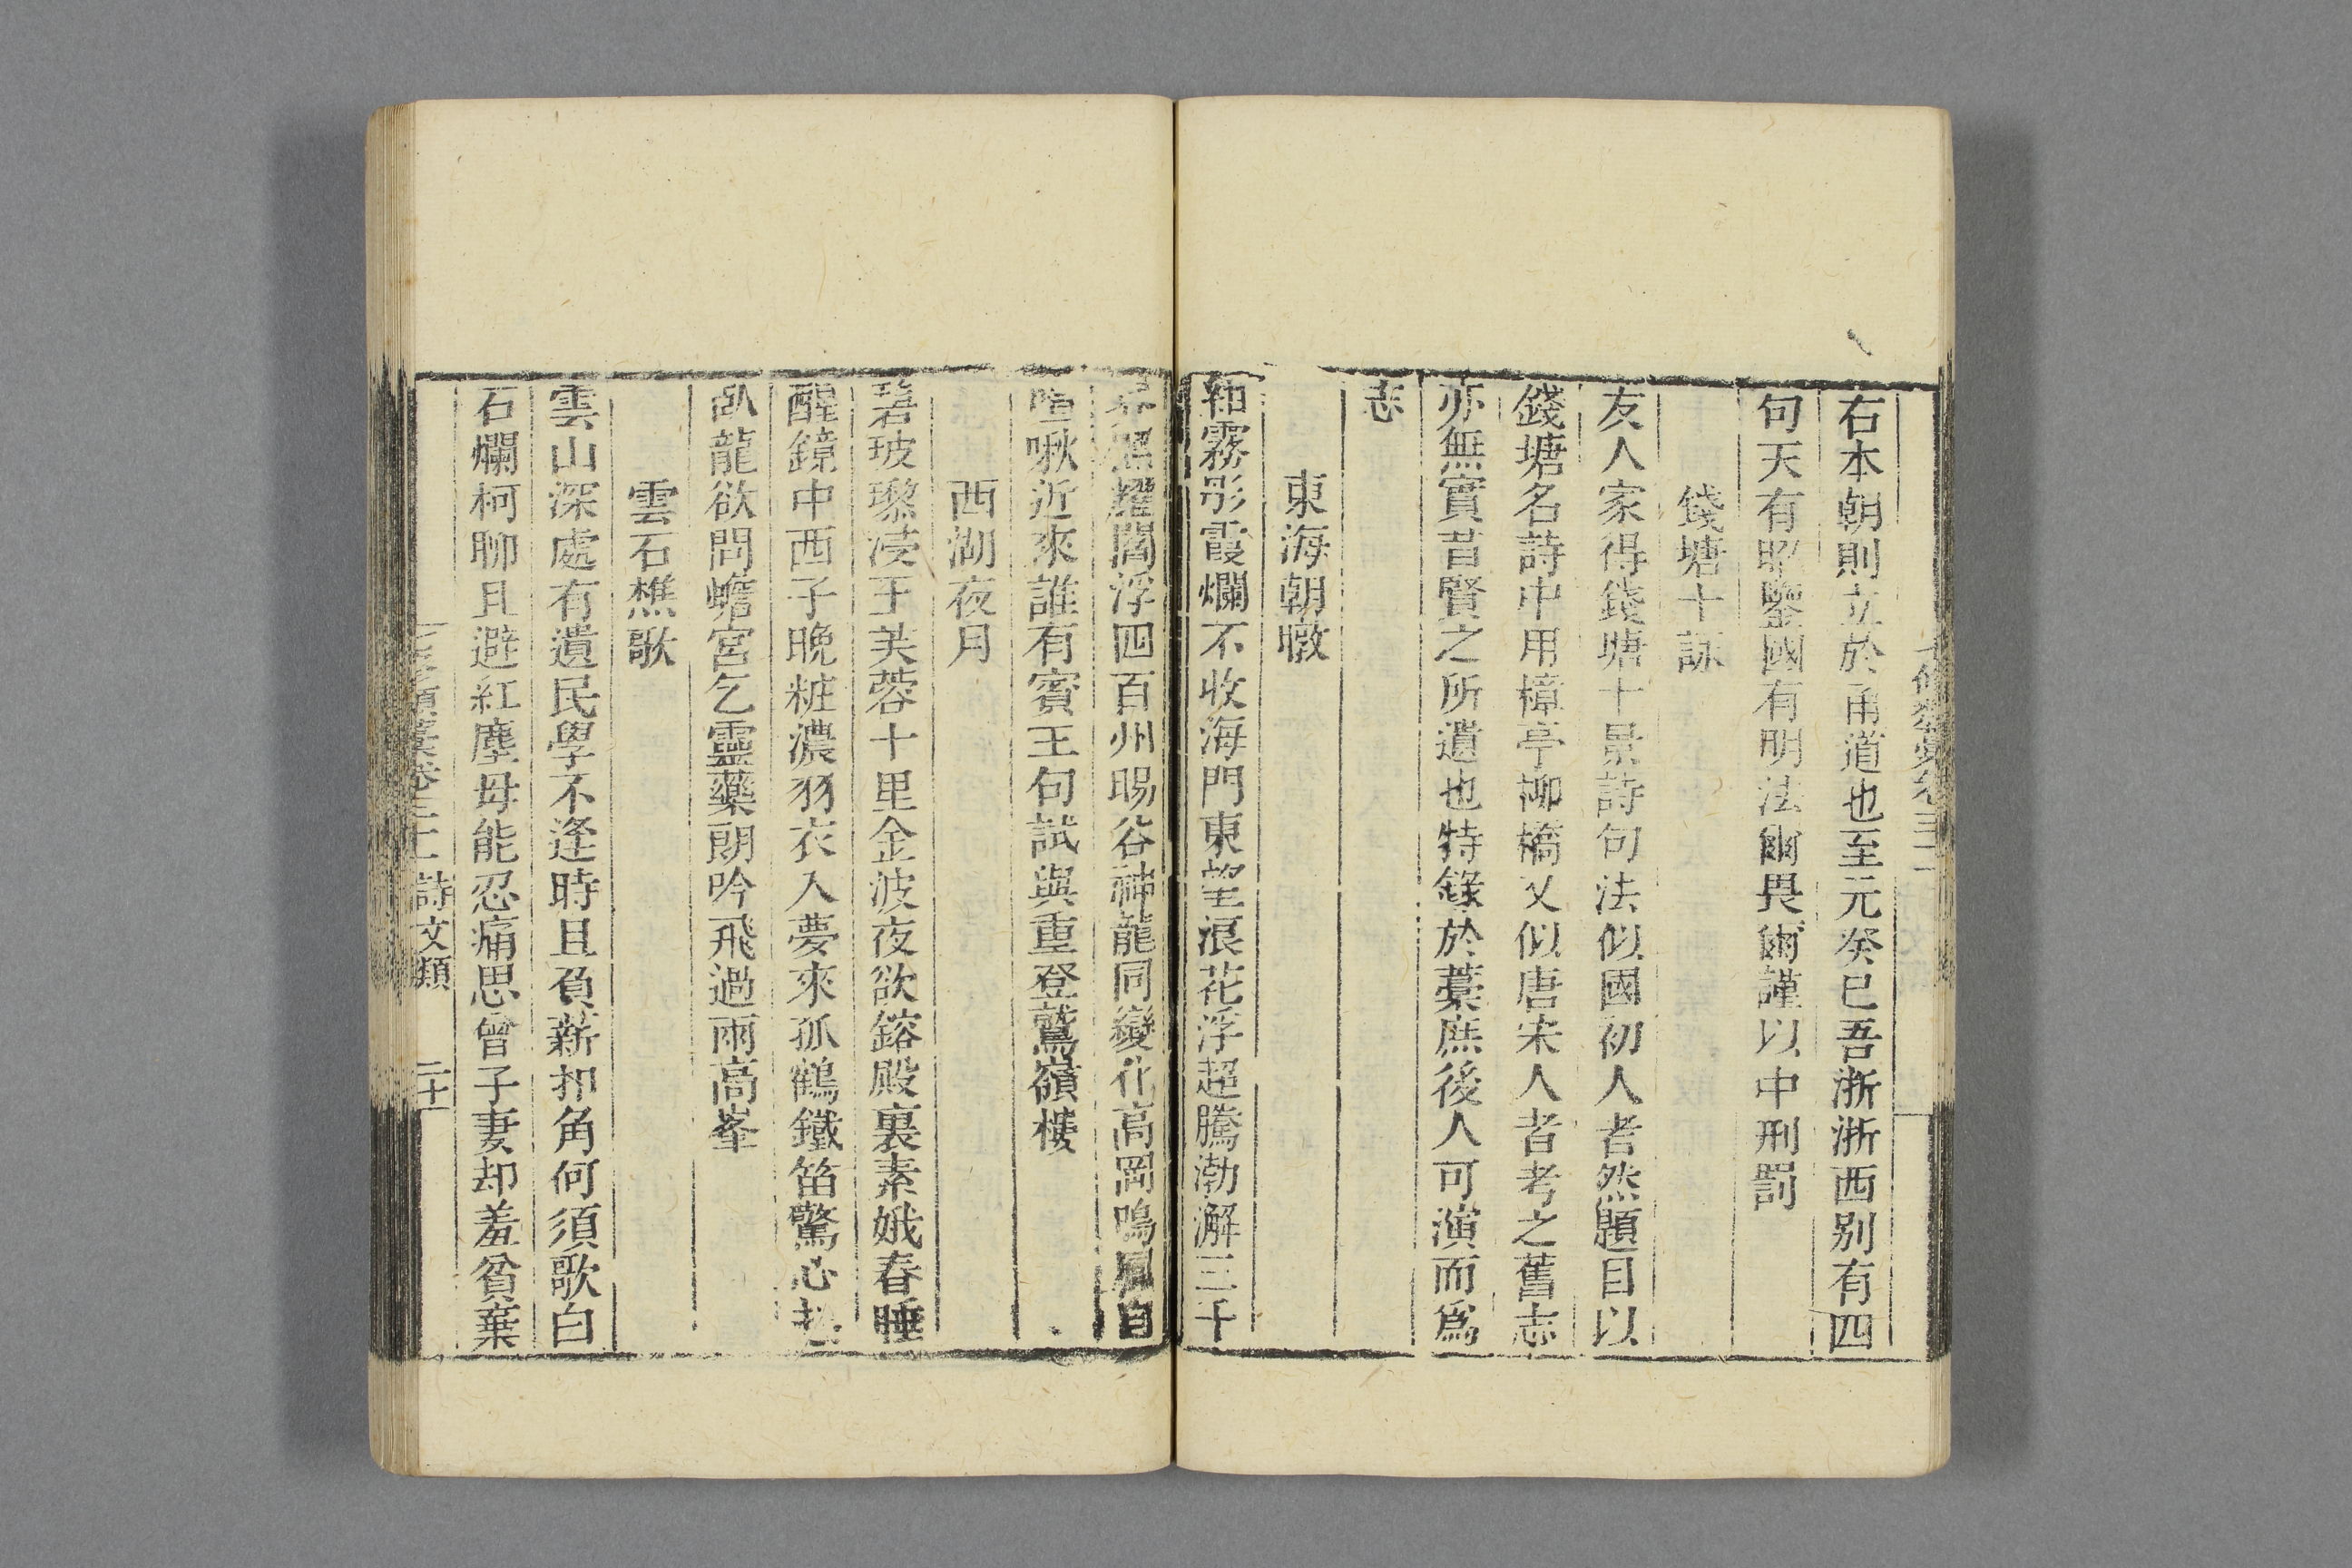 右本朝則立於甬道也至元癸巳吾浙浙西别有四
句天有昭鑒國有明法爾畏爾謹以中刑罰
錢塘十詠
友人家得錢塘十景詩句法似國初人者然題目以
錢塘名詩中用樟亭柳橋又似唐宋人者考之舊志
亦無實昔賢之所遺也特錄於藁庶後人可演而爲
志
東海朝暾
霧彤霞爛不收海門東望浪花浮超騰渤澥三千
界照耀閻浮四百州暘谷神龍同變化高岡鳴鳳自
喧啾近來誰有賓王句試與重登鷲嶺樓
西湖夜月
碧玻瓈浸玉芙蓉十里金波夜欲鎔殿裏素娥春睡
醒鏡中西子晚粧濃羽衣入夢來孤鶴鐵笛驚心起
臥龍欲問蟾宮乞靈藥朗吟飛過雨高峯
雲石樵歌
雲山深處有遺民學不逢時且負薪扣角何須歌白
石爛柯聊且避紅塵毋能忍痛思曾子妻却羞貧棄
七修類藁卷三十 詩文類 二十